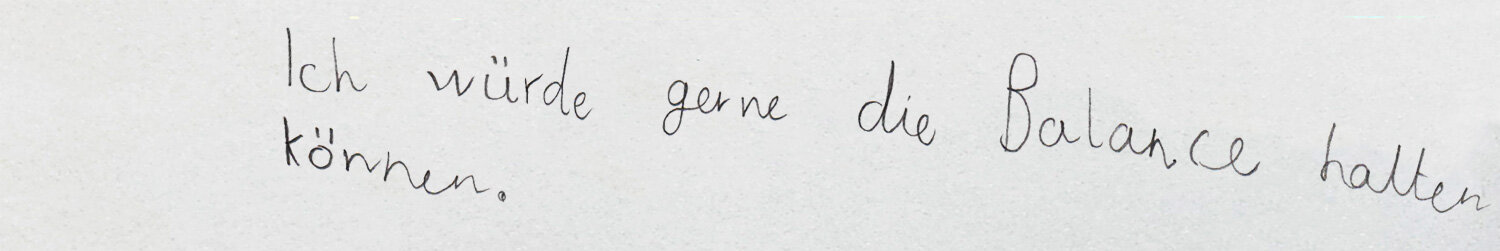 Ich würde gerne die Balance halten
können.